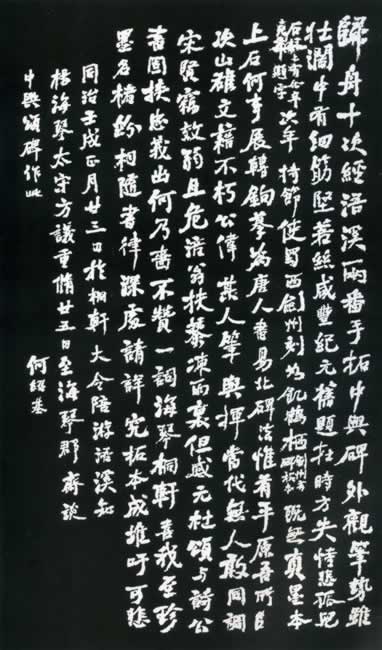 歸舟十次經浯溪兩番手拓中興碑外觀筆勢雖
壯濶中有細筋堅若絲咸豐紀元題在時方失恃悲孤兒
次年持節使蜀西劍州刻如飢鶴栖既無真墨本
上石何事展轉鉤摹為唐人書易北碑法惟有平原吾所師
次山雄文藉不朽公偉其人筆與揮當代無人敢同調
宋賢竊效弱且危涪翁扶藜凍雨裏但感元杜頌与詩公
書固挾忠義出何乃嗇不贊一詞海琴桐軒喜我至珍
墨名楮紛相隨書律深處請詳究拓本成堆吁可悲
同治壬戌正月廿三日於桐軒大令陪游浯溪知
楊海琴太守方議重脩廿五日至海琴郡齋談
中興頌碑作此
何紹基